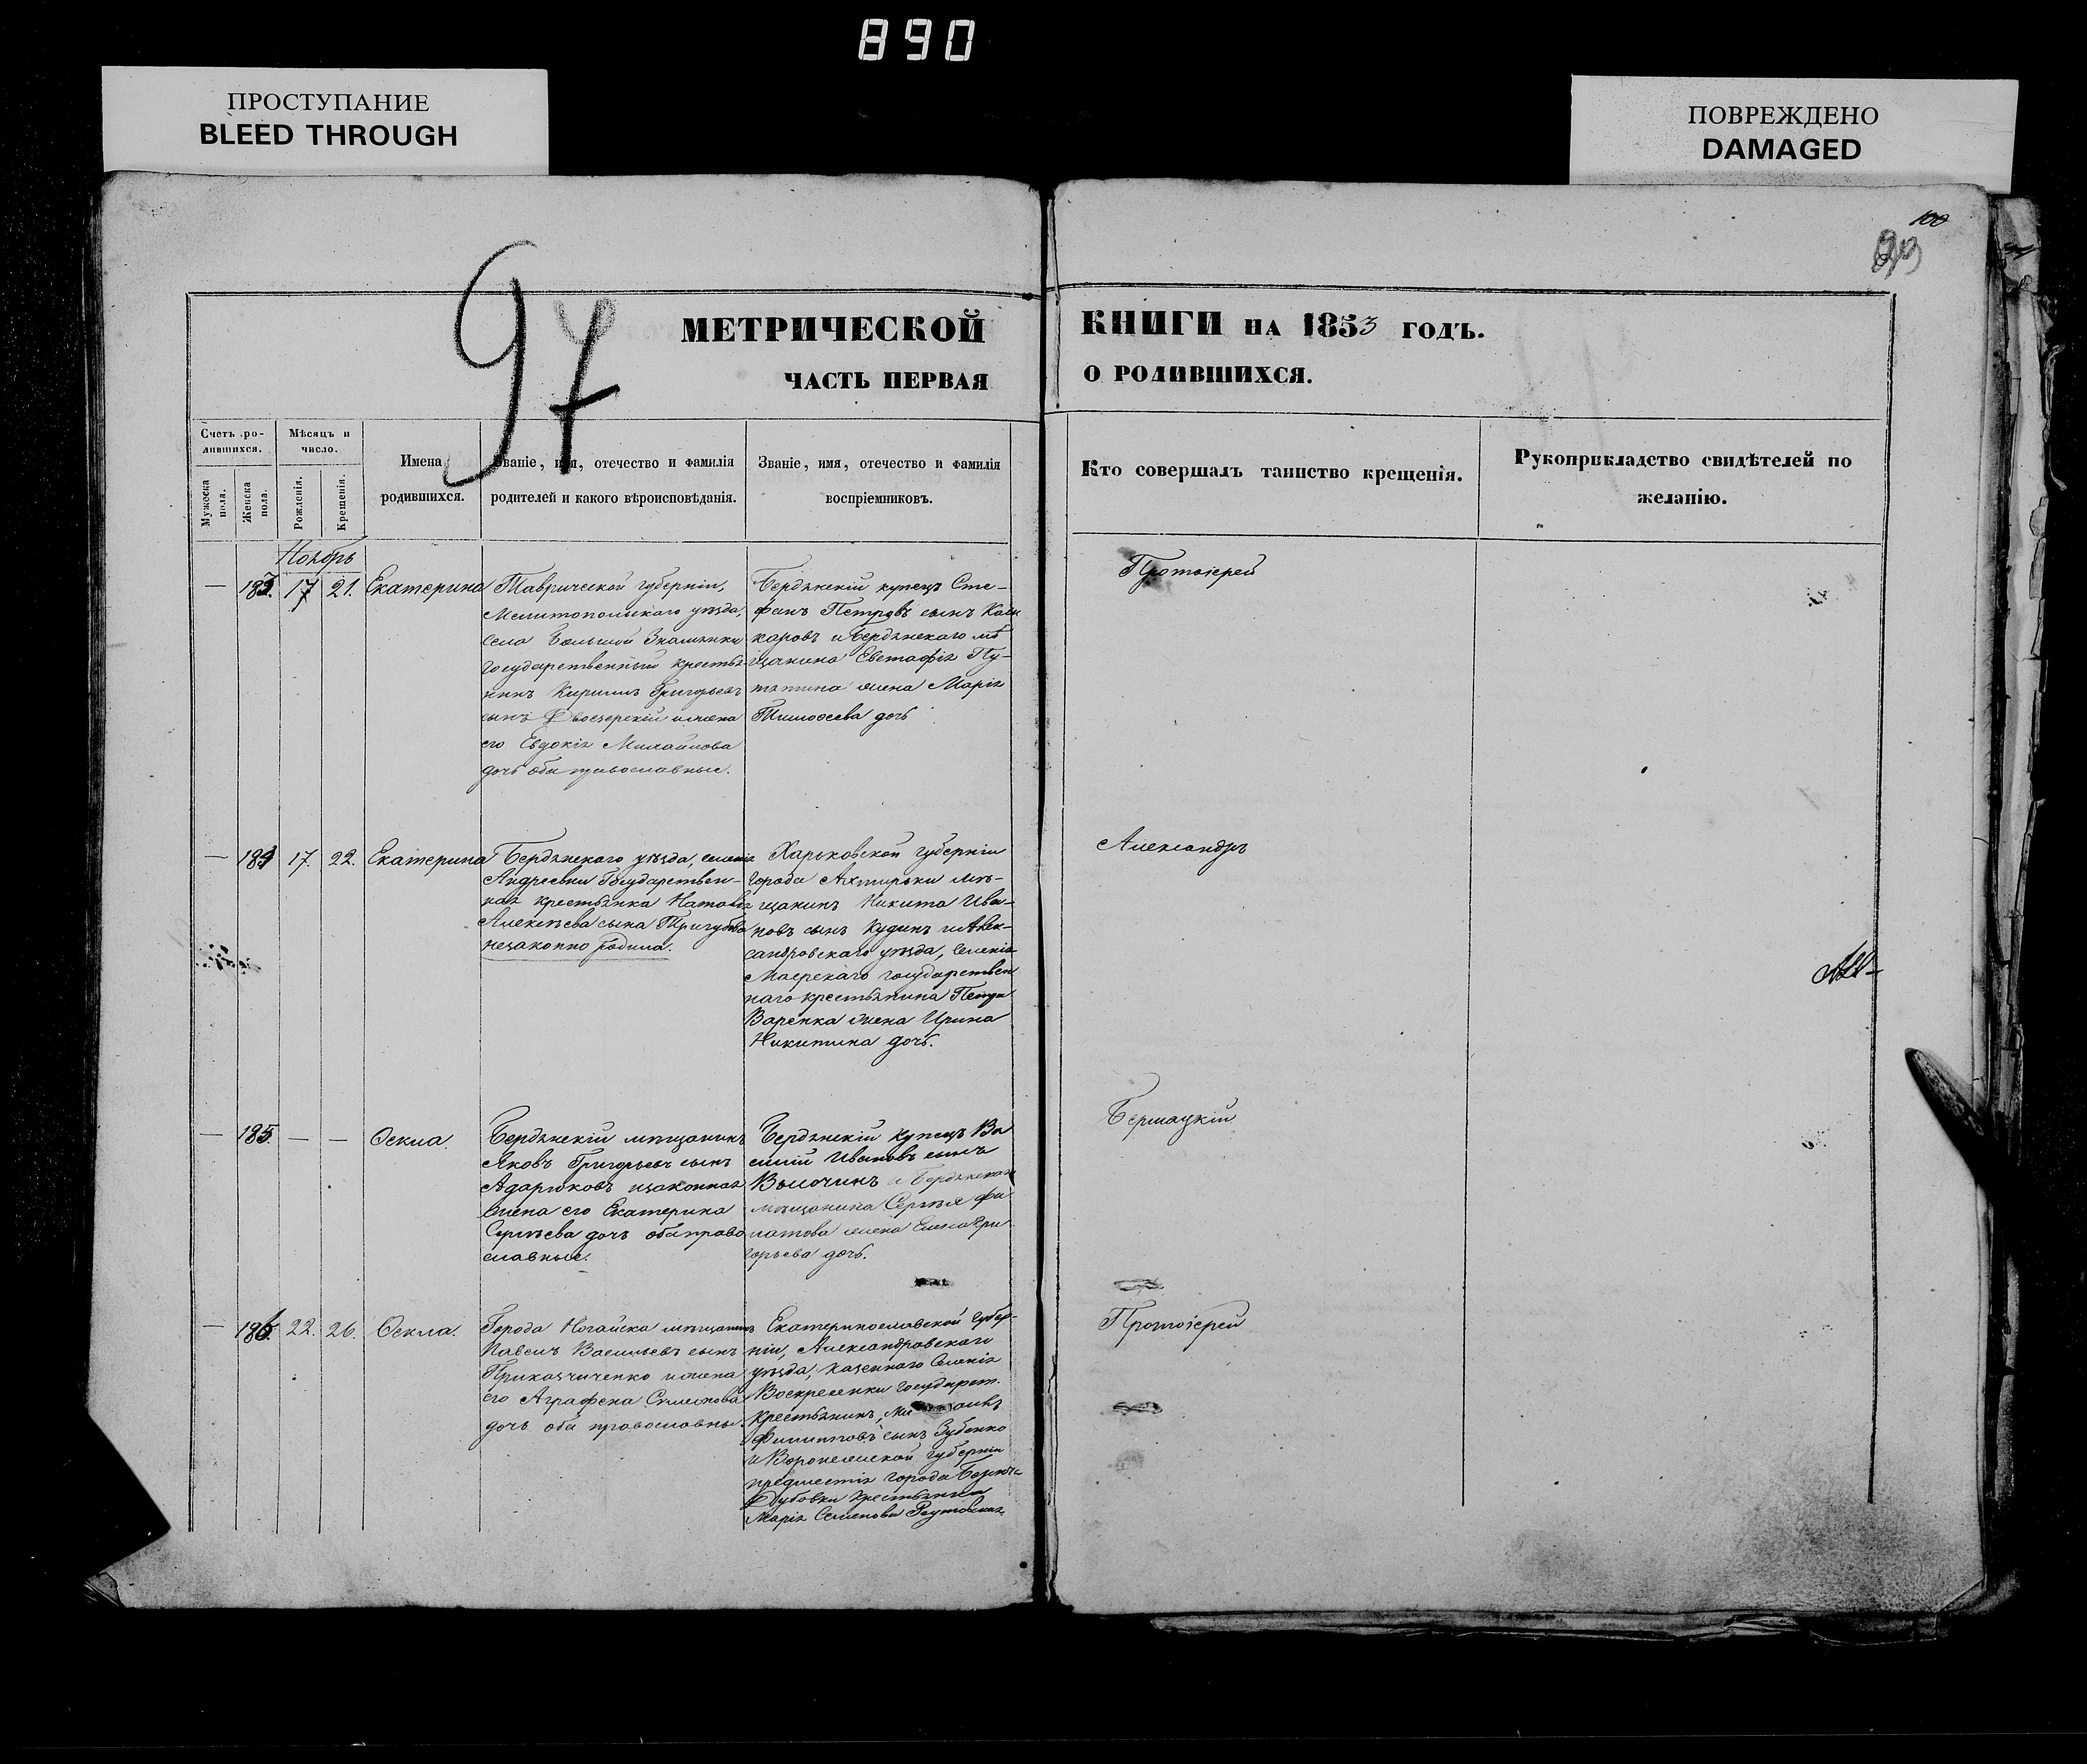 890
ПРОСТУПАНИЕ
BLEED THROUGH
ПОВРЕЖДЕНО
DAMAGED
100
97
МЕТРИЧЕСКОЙ
ЧАСТЬ ПЕРВАЯ
КНИГИ НА 1853 ГОДЪ.
О РОДИВШИХСЯ.
Счетъ ро-
дившихся.
Мужеска пола.
Женска пола.
Мѣсяцъ и
число.
Рожденія.
Крещенія.
Имена
родившихся.
Званіе, имя, отечество и фамилія
родителей и какого вѣроисповѣданія.
Званіе, имя, отечество и фамилія
воспріемниковъ.
Кто совершалъ таинство крещенія.
Рукоприкладство свидѣтелей по
желанію.
Ноябрь
— 183. 17 21. Екатерина
Таврической губерніи,
Мелитопольскаго уѣзда,
села Большой Знаменки
государственный крестья-
нинъ Кириллъ Григорьевъ
сынъ и жена
его Евдокія Михайлова
дочь оба православные.
Бердянскій купецъ Сте-
фанъ Петровъ сынъ
и Бердянскаго мѣ
щанина Евстафія Пу-
тятина жена Марія
Тимоѳеева дочь
Протоіерей
— 184 17. 22. Екатерина
Бердянскаго уѣзда, селенія
Андреевки Государствен-
ная крестьянка Наталія
Алексѣева сына Тригубова
незаконно родила.
Харьковской губерніи
города Ахтырки мѣ-
щанинъ Никита Ива-
новъ сынъ Кудинъ и Алек-
сандровскаго уѣзда, селенія
государствен
наго крестьянина Петра
Варенка жена Ирина
Никитина дочь.
Александръ
— 185. — — Ѳекла.
Бердянскій мѣщанинъ
Яковъ Григорьевъ сынъ
Адарюковъ и законная
жена его Екатерина
Сергѣева дочь оба право
славные.
Бердянскій купецъ Ва
силій Ивановъ сынъ
и Бердянскаго
мѣщанина Сергѣя Фи
латова жена Елена Гри
горьева дочь.
— 186. 22. 26. Ѳекла.
Города Ногайска мѣщанинъ
Павелъ Васильевъ сынъ
Приказчиченко и жена
его Аграфена Симонова
дочь оба православны.
Екатеринославской губер-
ніи, Александровскаго
уѣзда, казеннаго селенія
Воскресенки государст.
крестьянинъ,
Филипповъ сынъ Зубенко
и Воронежской губерніи
предместія города
Дубовки крестьянки
Марія Семенова
Протоіерей